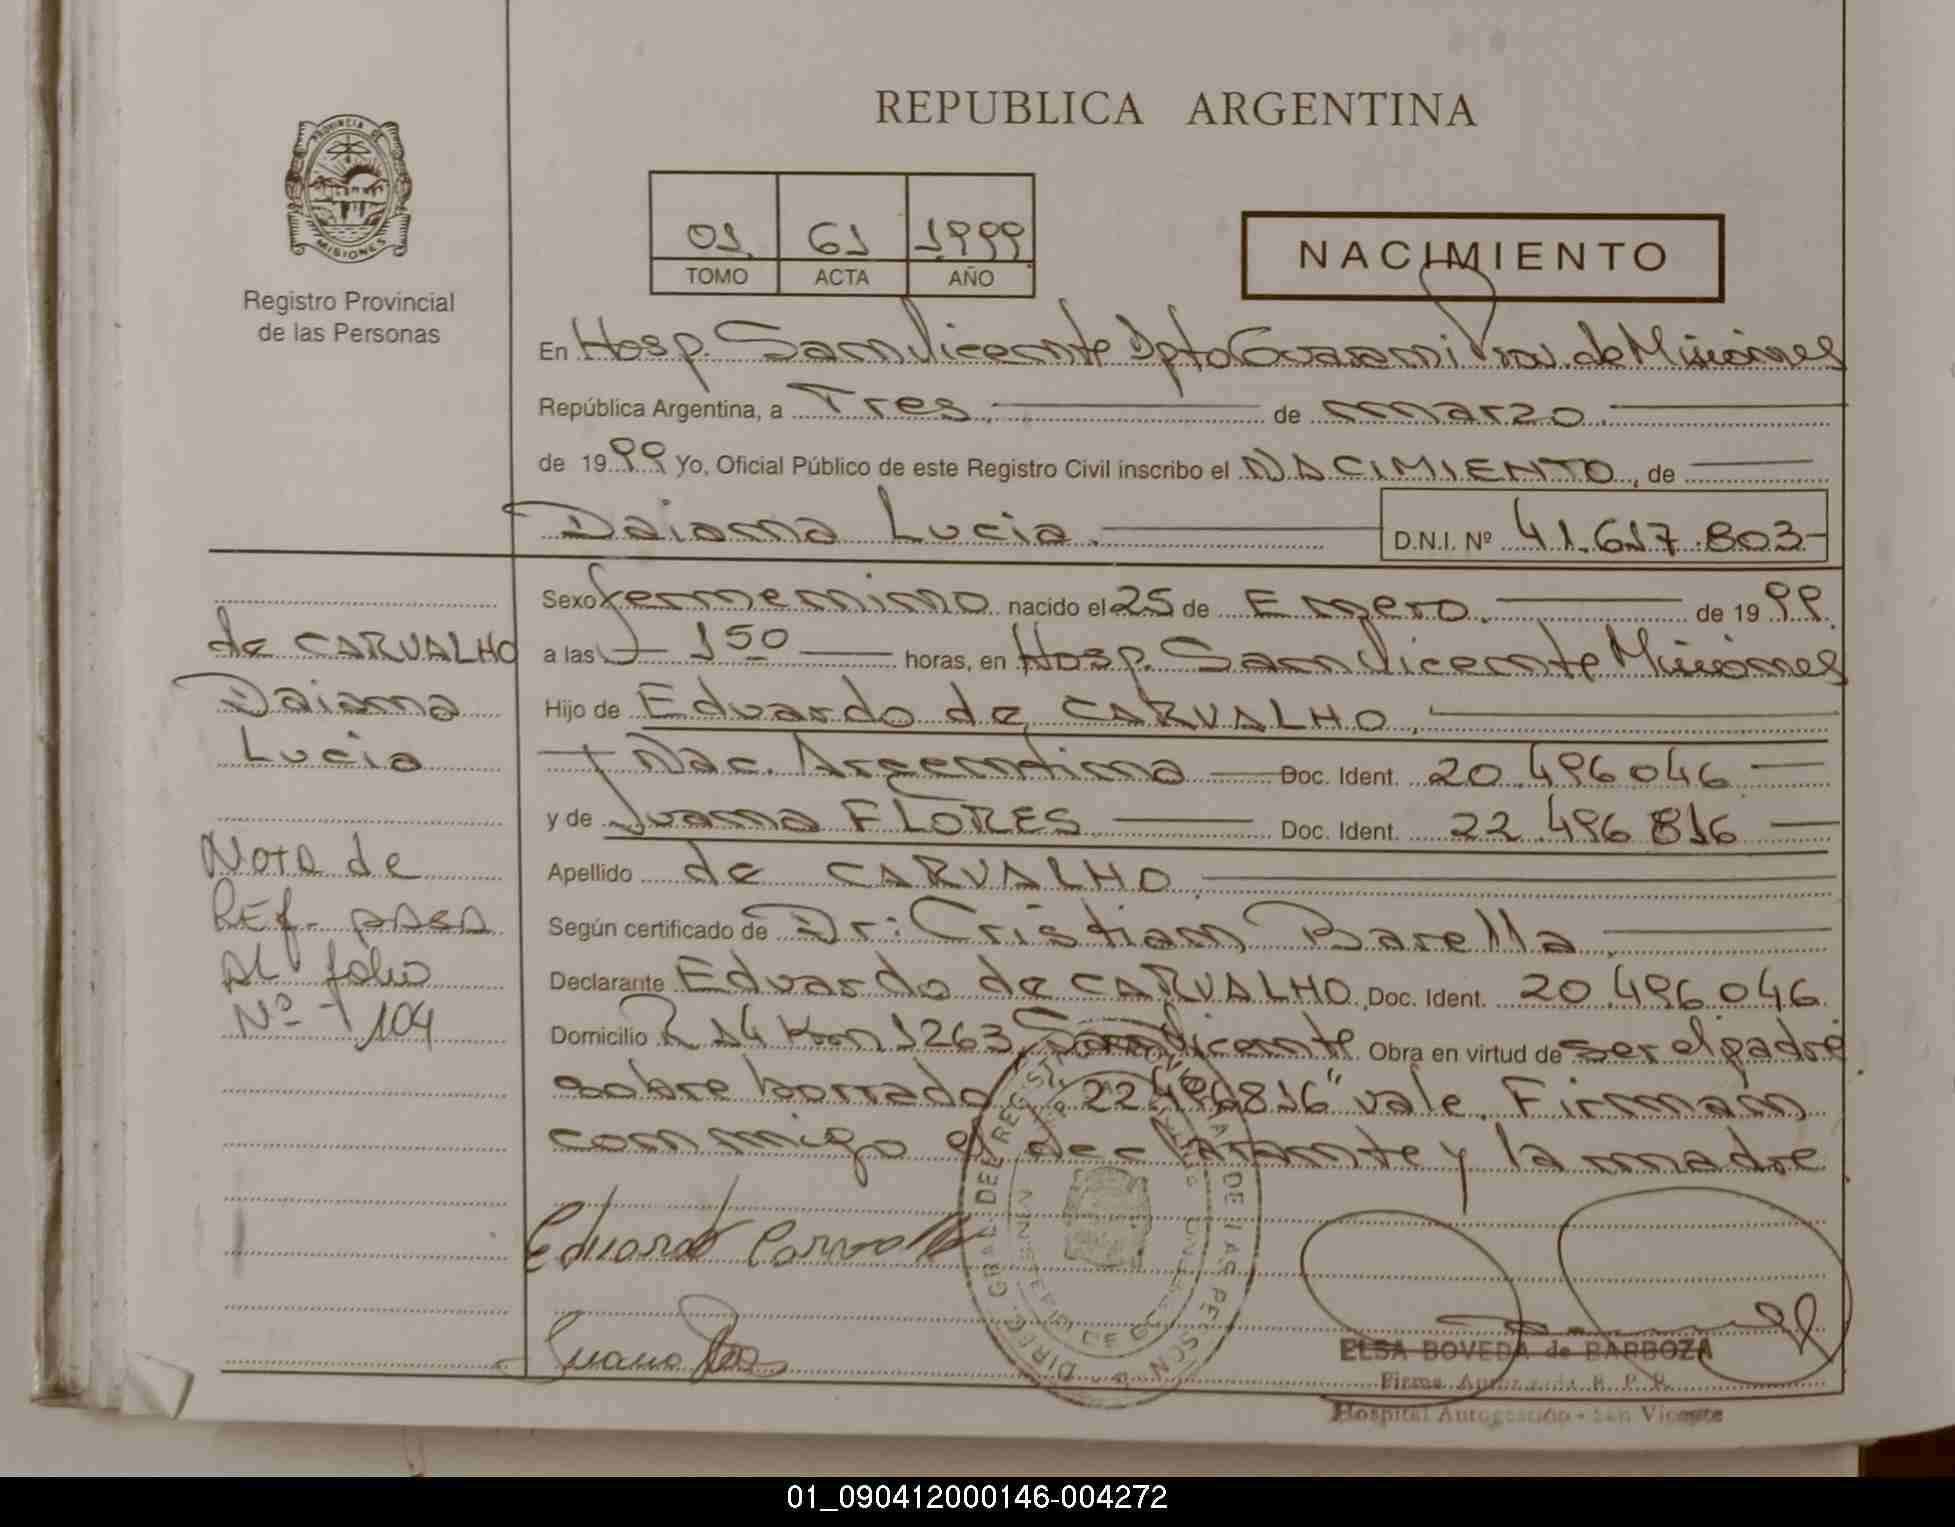 REPUBLICA ARGENTINA
PROVINCIA DE
MISIONES
Registro Provincial
de las Personas
01 61 1999
TOMO ACTA AÑO
NACIMIENTO
En Hosp. San Vicente Dpto Guarani Prov. de Misiones
República Argentina, a Tres de marzo
de 1999 Yo, Oficial Público de este Registro Civil inscribo el NACIMIENTO, de
Daiana Lucia. D.N.I. Nº 41.617.803-
Sexo femenino nacido el 25 de Enero. de 1999.
a las 1 50 horas, en Hosp. San Vicente Misiones
Hijo de Eduardo de CARVALHO
Nac. Argentina Doc. Ident. 20.496046
y de Juana FLORES Doc. Ident. 22.496 816
Apellido de CARVALHO
Según certificado de Dr: Cristian Barella
Declarante Eduardo de CARVALHO, Doc. Ident. 20.496046
Domicilio R 14 Km 1263 San Vicente Obra en virtud de ser el padre
sobre borrado 22496816" vale. Firman
conmigo el declarante y la madre
de CARVALHO
Daiana
Lucia
Nota de
REf. pasa
al folio
Nº 104
Eduardo Carvalh
Juana
ELSA BOVEDA de BARBOZA
Firma Autorizada R. P. P.
Hospital Autogestión - San Vicente
01_090412000146-004272